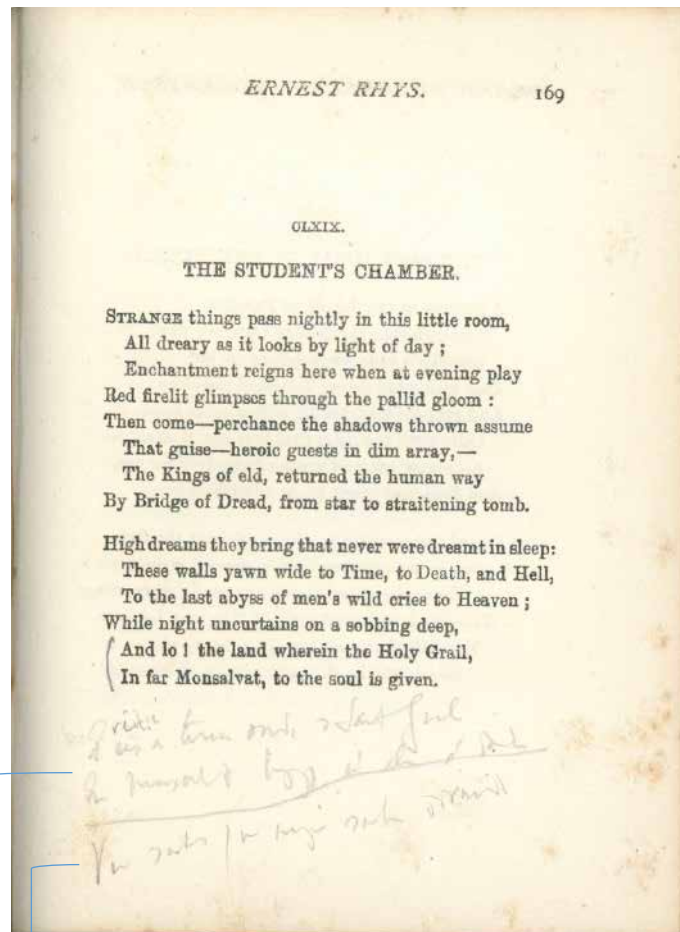 ERNEST RHYS. 169
CLXIX.
THE STUDENT'S CHAMBER.
STRANGE things pass nightly in this little room,
All dreary as it looks by light of day ;
Enchantment reigns here when at evening play
Red firelit glimpses through the pallid gloom :
Then come—perchance the shadows thrown assume
That guise—heroic guests in dim array,—
The Kings of eld, returned the human way
By Bridge of Dread, from star to straitening tomb.
High dreams they bring that never were dreamt in sleep:
These walls yawn wide to Time, to Death, and Hell,
To the last abyss of men's wild cries to Heaven ;
While night uncurtains on a sobbing deep,
And lo ! the land wherein the Holy Grail,
In far Monsalvat, to the soul is given.